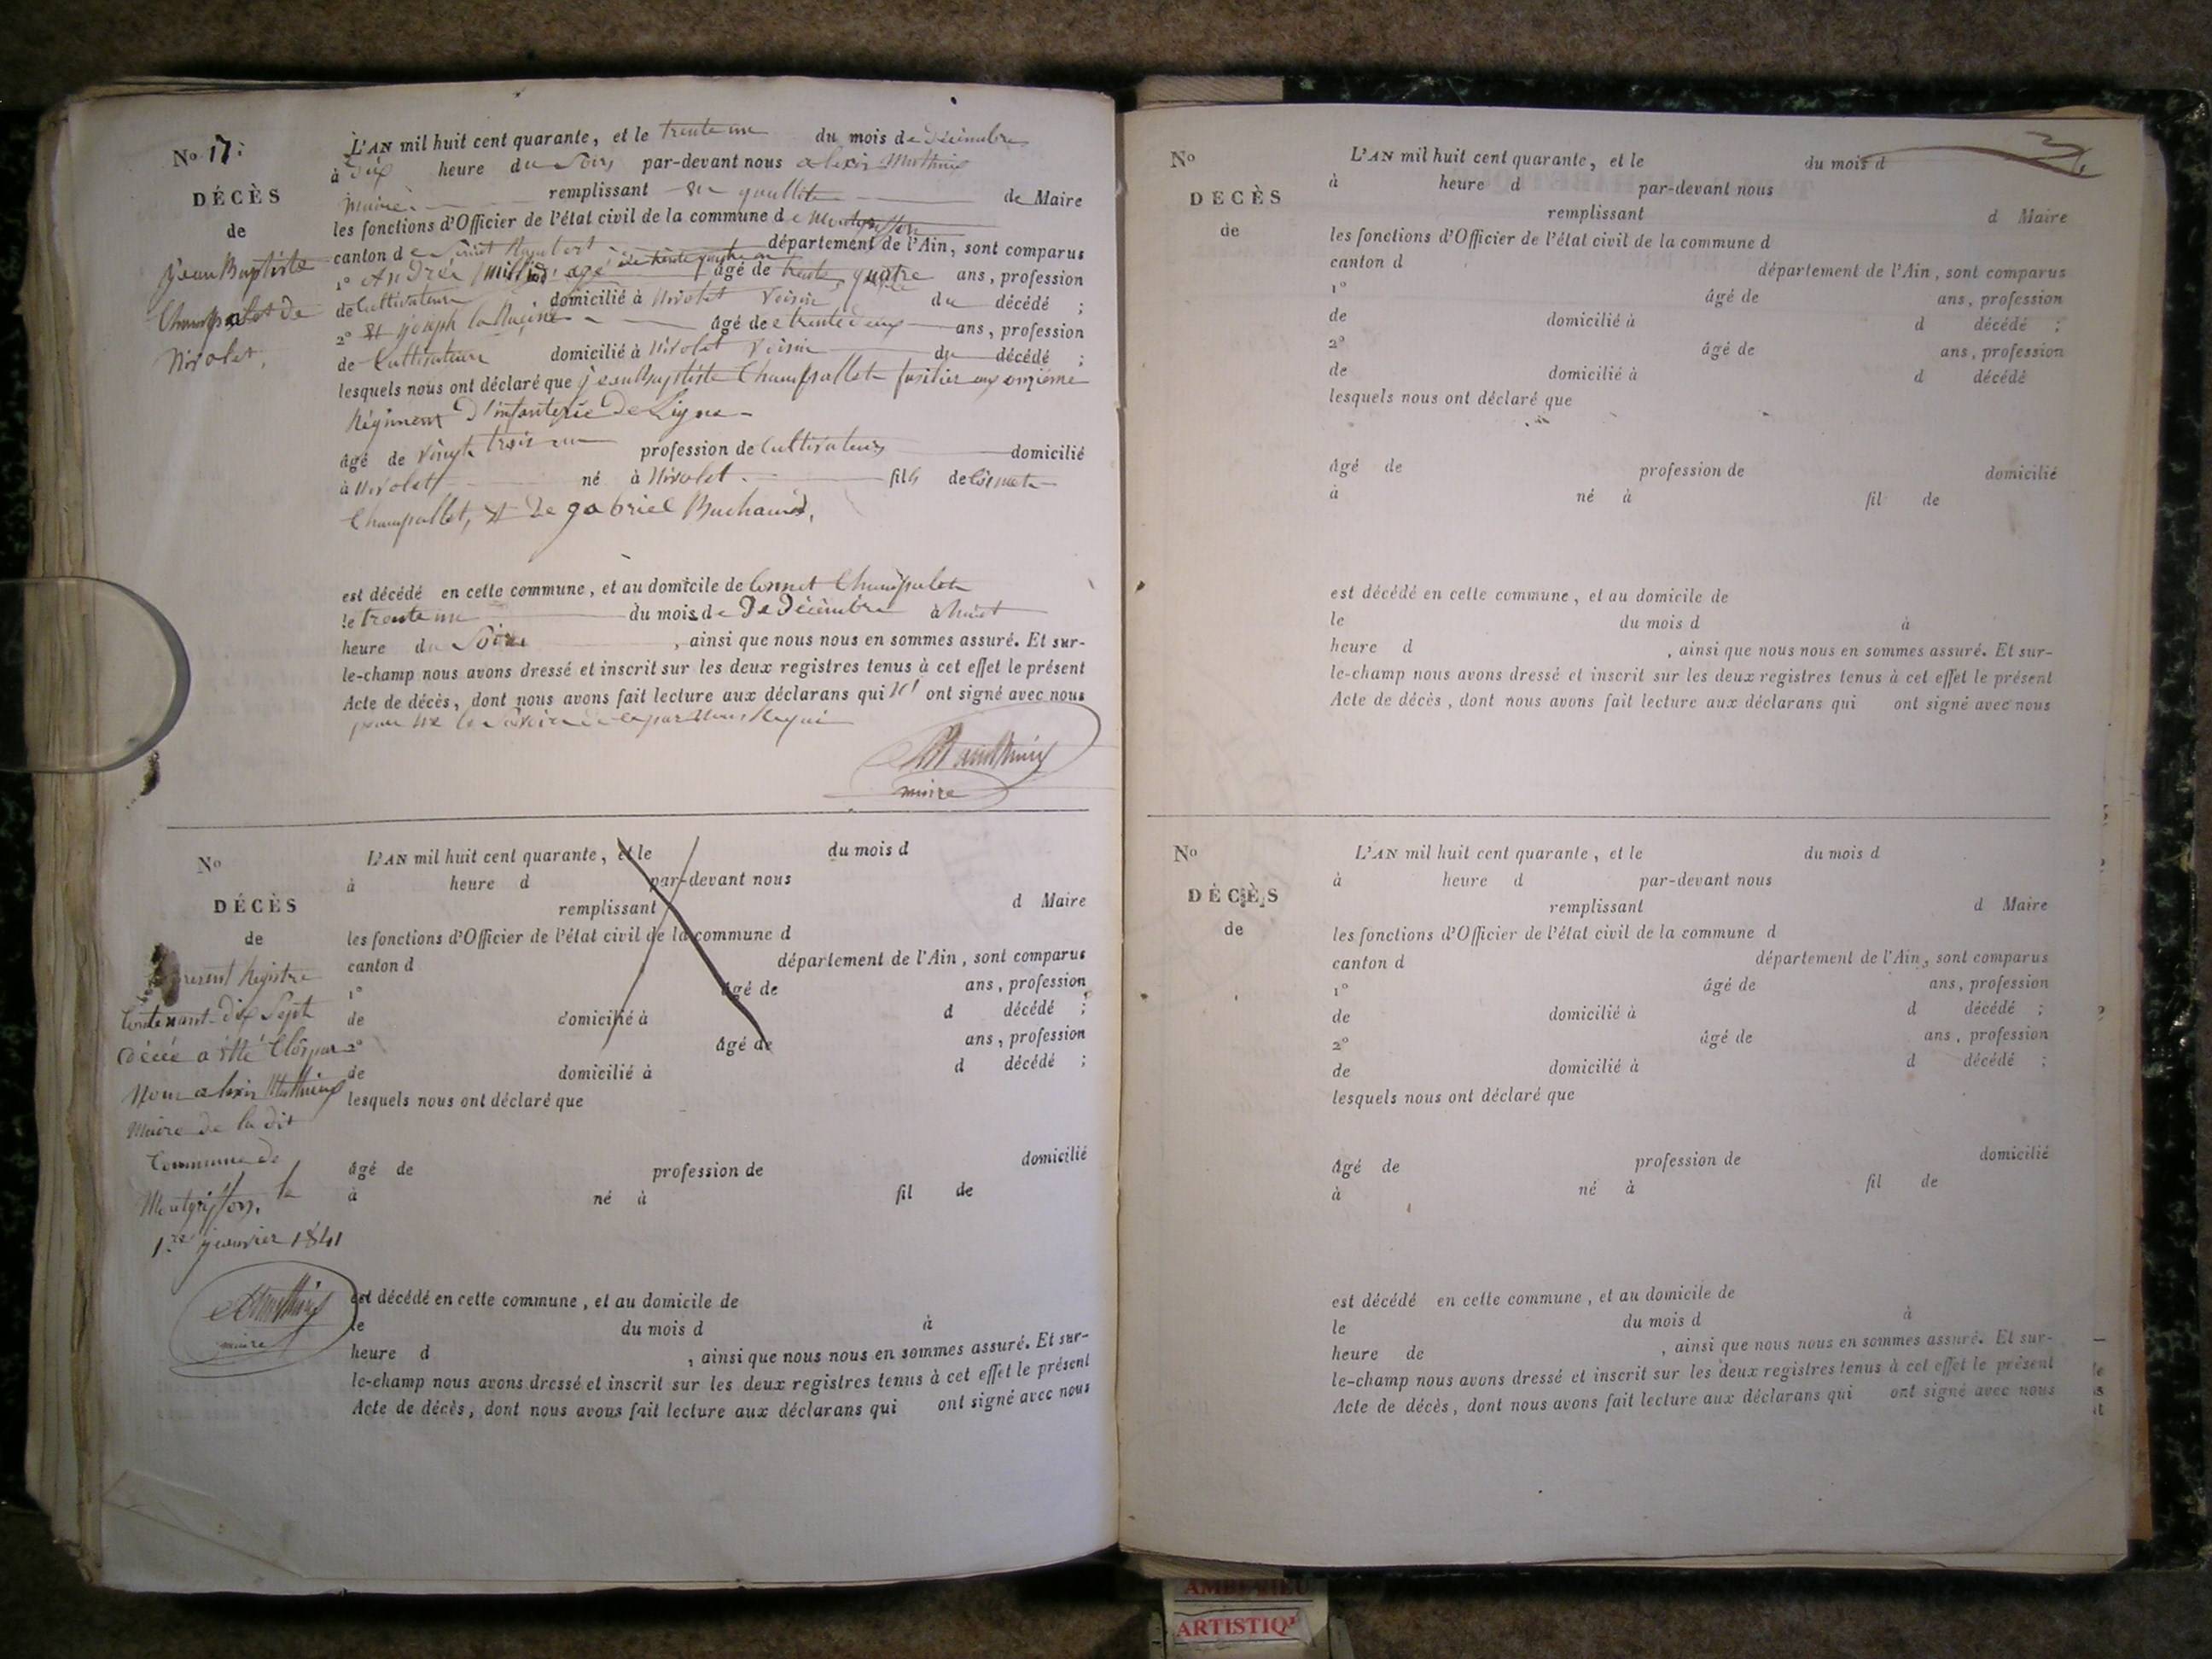 No 17.
DÉCÈS
de
Jean Baptiste
Champalet de
Nivolet.
L'AN mil huit cent quarante, et le trente un du mois de Décembre
à dix heure du Soir par-devant nous alexis Mathieu
Maire remplissant en quallité de Maire
les fonctions d'Officier de l'état civil de la commune de Montgriffon
canton de Saint Rambert département de l'Ain, sont comparus
1° André agé de trente quatre an âgé de trente quatre ans, profession
de Cultivateur, domicilié à Nivolet Voisin du décédé ;
2° Et joseph la Racine âgé de trente deux ans, profession
de Cultivateur domicilié à Nivolet Voisin du décédé ;
lesquels nous ont déclaré que jean baptiste Champallet fusilier au onzième
Régiment d'infanterie de Ligne
âgé de vingt trois an profession de Cultivateur domicilié
à Nivolet né à Nivolet. fils de
Champallet, Et de gabriel Buchaud,
est décédé en cette commune, et au domicile de Champalet
le trente un du mois de De Décembre à huit
heure du Soir, ainsi que nous nous en sommes assuré. Et sur-
le-champ nous avons dressé et inscrit sur les deux registres tenus à cet effet le présent
Acte de décès, dont nous avons fait lecture aux déclarans qui n' ont signé avec nous
pour ne le Savoir de ce par Nous Requi
Mathieu
maire
No
DÉCÈS
de
présent Registre
Contenant dix Sept
Décée a été Clos par
Nous alexis Mathieu
Maire de la dit
Commune de
Montgriffon, le
1er janvier 1841
AMathieu
maire
L'AN mil huit cent quarante, et le du mois d
à heure d par-devant nous
remplissant d Maire
les fonctions d'Officier de l'état civil de la commune d
canton d département de l'Ain, sont comparus
1° âgé de ans, profession
de domicilié à d décédé ;
2° âgé de ans, profession
de domicilié à d décédé ;
lesquels nous ont déclaré que
âgé de profession de domicilié
à né à fil de
est décédé en cette commune, et au domicile de
le du mois d à
heure d , ainsi que nous nous en sommes assuré. Et sur-
le-champ nous avons dressé et inscrit sur les deux registres tenus à cet effet le présent
Acte de décès, dont nous avons fait lecture aux déclarans qui ont signé avec nous
No
DÉCÈS
de
L'AN mil huit cent quarante, et le du mois d
à heure d par-devant nous
remplissant d Maire
les fonctions d'Officier de l'état civil de la commune d
canton d département de l'Ain, sont comparus
1° âgé de ans, profession
de domicilié à d décédé ;
2° âgé de ans, profession
de domicilié à d décédé
lesquels nous ont déclaré que
âgé de profession de domicilié
à né à fil de
est décédé en cette commune, et au domicile de
le du mois d à
heure d , ainsi que nous nous en sommes assuré. Et sur-
le-champ nous avons dressé et inscrit sur les deux registres tenus à cet effet le présent
Acte de décès, dont nous avons fait lecture aux déclarans qui ont signé avec nous
No
DÉCÈS
de
L'AN mil huit cent quarante, et le du mois d
à heure d par-devant nous
remplissant d Maire
les fonctions d'Officier de l'état civil de la commune d
canton d département de l'Ain, sont comparus
1° âgé de ans, profession
de domicilié à d décédé ;
2° âgé de ans, profession
de domicilié à d décédé ;
lesquels nous ont déclaré que
âgé de profession de domicilié
à né à fil de
est décédé en cette commune, et au domicile de
le du mois d à
heure de , ainsi que nous nous en sommes assuré. Et sur-
le-champ nous avons dressé et inscrit sur les deux registres tenus à cet effet le présent
Acte de décès, dont nous avons fait lecture aux déclarans qui ont signé avec nous
AMBERIEU
ARTISTIQ